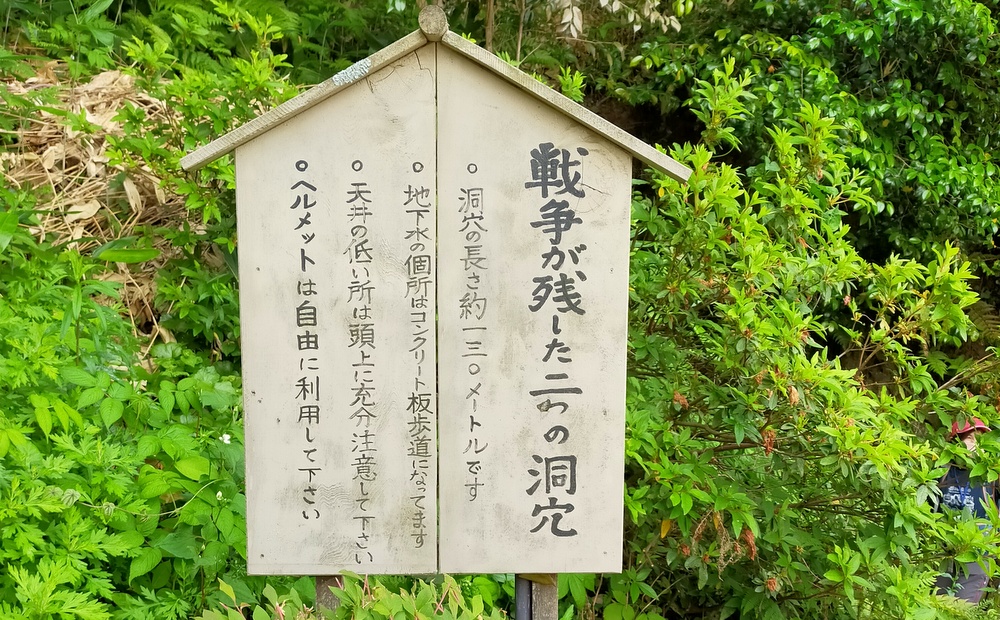 戦争が残した二つの洞穴
○洞穴の長さ約一三○メートルです
○地下水の個所はコンクリート板歩道になってます
○天井の低い所は頭上に充分注意して下さい
○ヘルメットは自由に利用して下さい